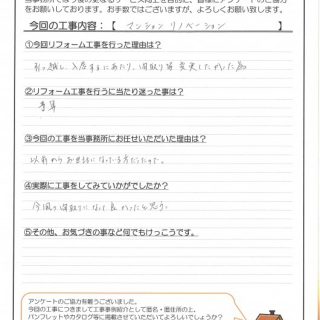 をお願いしております。お手数ではございますが、よろしくお願い致します。
今回の工事内容：【 マンション リノベーション 】
①今回リフォーム工事を行った理由は？
引っ越し、入居するにあたり、間取り等変更したかった為
②リフォーム工事を行うに当たり迷った事は？
予算
③今回の工事を当事務所にお任せいただいた理由は？
以前からお世話になっている方だったので。
④実際に工事をしてみていかがでしたか？
今風の間取りになって良かったと思う。
⑤その他、お気づきの事など何でもけっこうです。
アンケートのご協力有難うございました。
今回の工事につきまして工事事例紹介として匿名・居住所の上、
パンフレットやカタログ等に掲載させていただいてよろしいでしょうか？